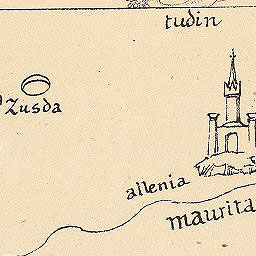 tudin
Zusda
allenia
maurita